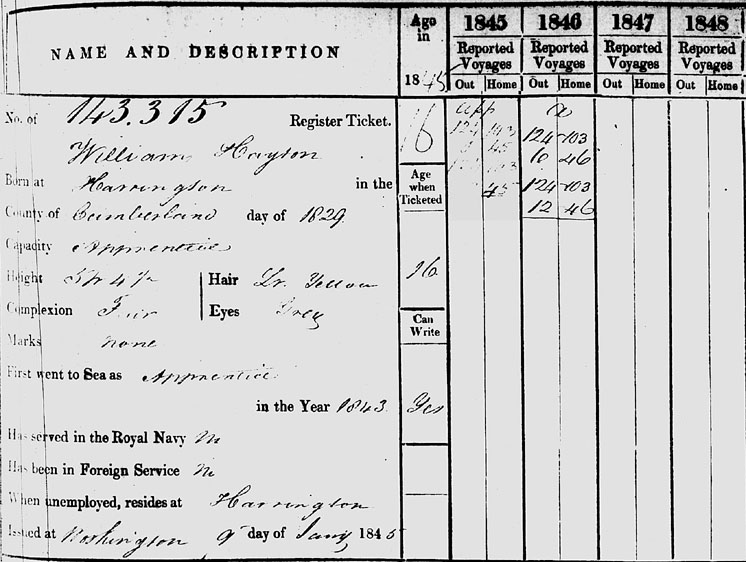 NAME AND DESCRIPTION
Age in 1845
1845 1846 1847 1848
Reported Voyages Reported Voyages Reported Voyages Reported Voyages
Out Home Out Home Out Home Out Home
No. of 143.315 Register Ticket.
William Hayton
Born at Harrington in the
County of Cumberland day of 1829
Capacity Apprentice
Height 5ft 4½ Hair Lt. Yellow
Complexion Fair Eyes Grey
Marks none
First went to Sea as Apprentice
in the Year 1843
Has served in the Royal Navy
Has been in Foreign Service
When unemployed, resides at Harrington
Issued at Workington 9 day of Jany 1845
16
Age when Ticketed
16
Can Write
Yes
app
45
45
a
124 103
10 46
124 103
12 46